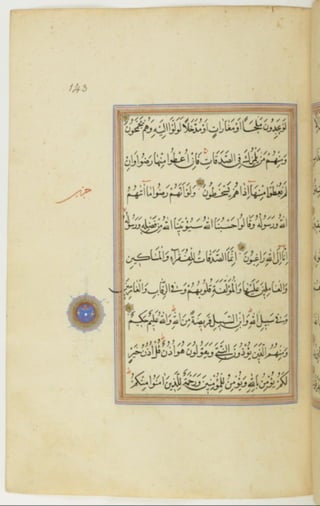 143
لَوْ يَجِدُونَ مَلْجَأً أَوْ مَغَارَاتٍ أَوْ مُدَّخَلًا لَوَلَّوْا إِلَيْهِ وَهُمْ يَجْمَحُونَ
وَمِنْهُمْ مَنْ يَلْمِزُكَ فِي الصَّدَقَاتِ فَإِنْ أُعْطُوا مِنْهَا رَضُوا وَإِنْ
لَمْ يُعْطَوْا مِنْهَا إِذَا هُمْ يَسْخَطُونَ وَلَوْ أَنَّهُمْ رَضُوا مَا آتٰيهُمُ
حزب
اللهُ وَرَسُولُهُ وَقَالُوا حَسْبُنَا اللهُ سَيُؤْتِينَا اللهُ مِنْ فَضْلِهِ وَرَسُولُهُ
إِنَّا إِلَى اللهِ رَاغِبُونَ إِنَّمَا الصَّدَقَاتُ لِلْفُقَرَاءِ وَالْمَسَاكِينِ
وَالْعَامِلِينَ عَلَيْهَا وَالْمُؤَلَّفَةِ قُلُوبُهُمْ وَفِي الرِّقَابِ وَالْغَارِمِينَ
وَفِي سَبِيلِ اللهِ وَابْنِ السَّبِيلِ فَرِيضَةً مِنَ اللهِ وَاللهُ عَلِيمٌ حَكِيمٌ
وَمِنْهُمُ الَّذِينَ يُؤْذُونَ النَّبِيَّ وَيَقُولُونَ هُوَ أُذُنٌ قُلْ أُذُنُ خَيْرٍ
لَكُمْ يُؤْمِنُ بِاللهِ وَيُؤْمِنُ لِلْمُؤْمِنِينَ وَرَحْمَةٌ لِلَّذِينَ آمَنُوا مِنْكُمْ